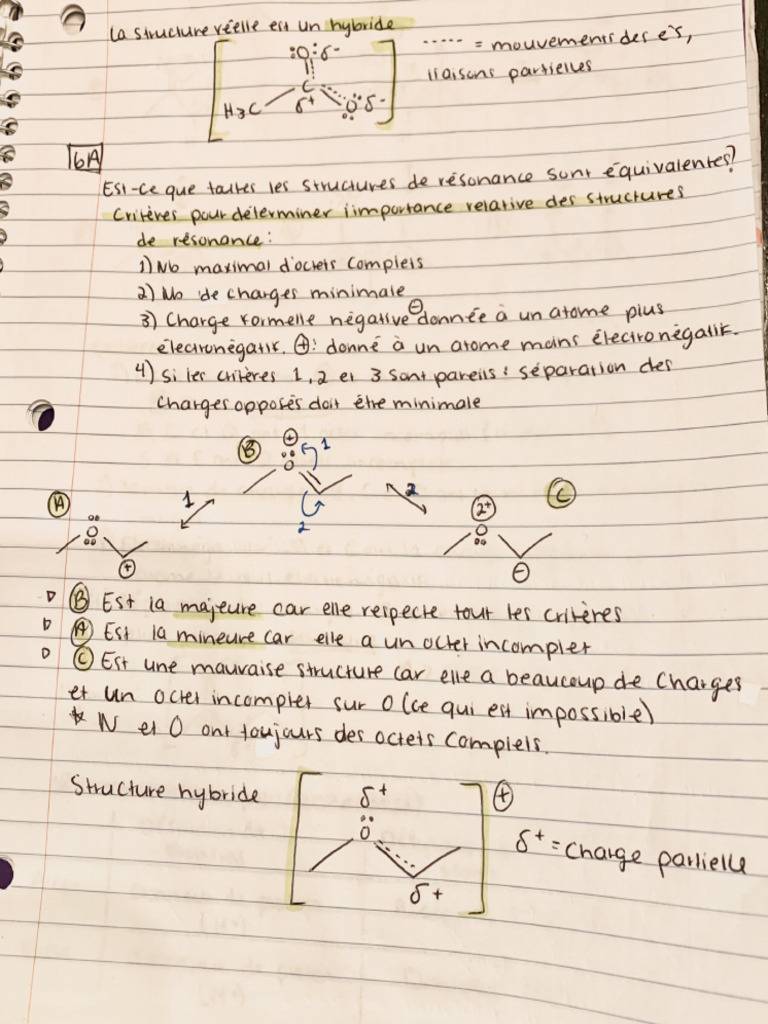 La structure réelle est un hybride
:O: δ-
..... = mouvements des e-s,
liaisons partielles
C
H3C δ+ O δ-
6A
Est-ce que toutes les structures de résonance sont équivalentes?
Critères pour déterminer l'importance relative des structures
de résonance:
1) Nb maximal d'octets complets
2) Nb de charges minimale
3) Charge formelle négative ⊖ donnée à un atome plus
électronégatif. ⊕: donné à un atome moins électronégatif.
4) Si les critères 1, 2 et 3 sont pareils: séparation des
charges opposés doit être minimale
B ⊕
O 1
2
A 1
O
⊕
2
C
2+
O
⊖
B Est la majeure car elle respecte tout les critères
A Est la mineure car elle a un octet incomplet
C Est une mauvaise structure car elle a beaucoup de charges
et un octet incomplet sur O (ce qui est impossible)
* N et O ont toujours des octets complets.
Structure hybride
δ+
⊕
O
δ+ = charge partielle
δ+